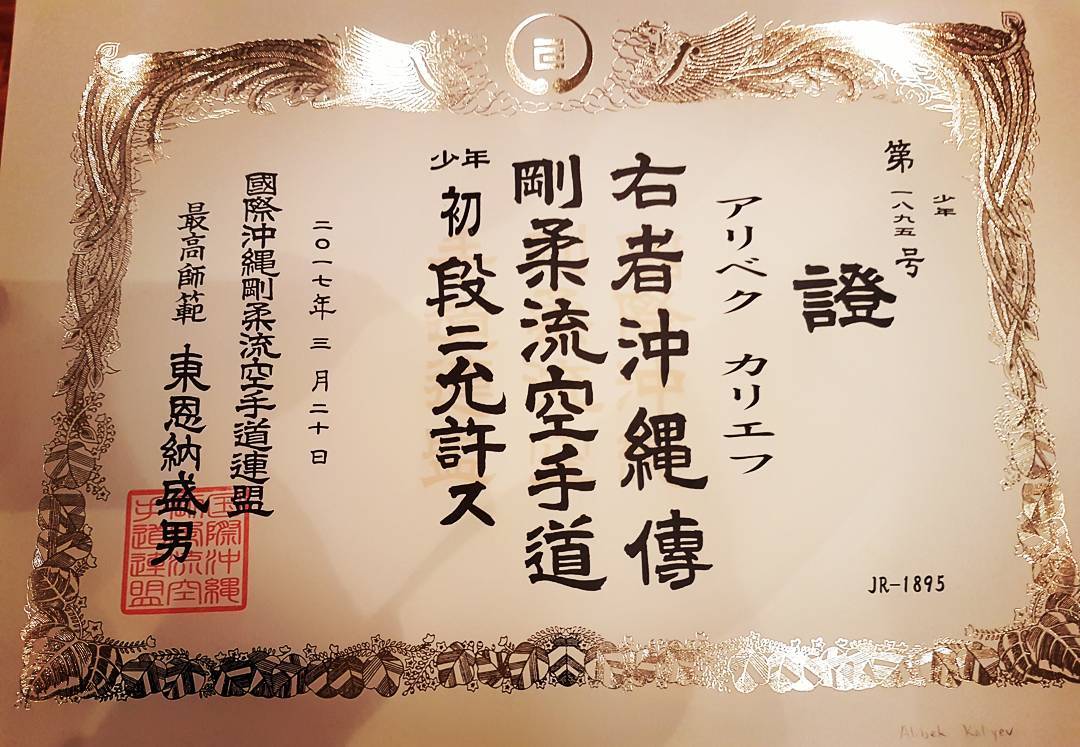 少年
第一八九五号
證
アリベク カリエフ
右者沖縄傳
剛柔流空手道
少年
初段ニ允許ス
二〇一七年三月二十日
國際沖縄剛柔流空手道連盟
最高師範 東恩納盛男
国際沖縄
剛柔流空
手道連盟
JR-1895
Alibek